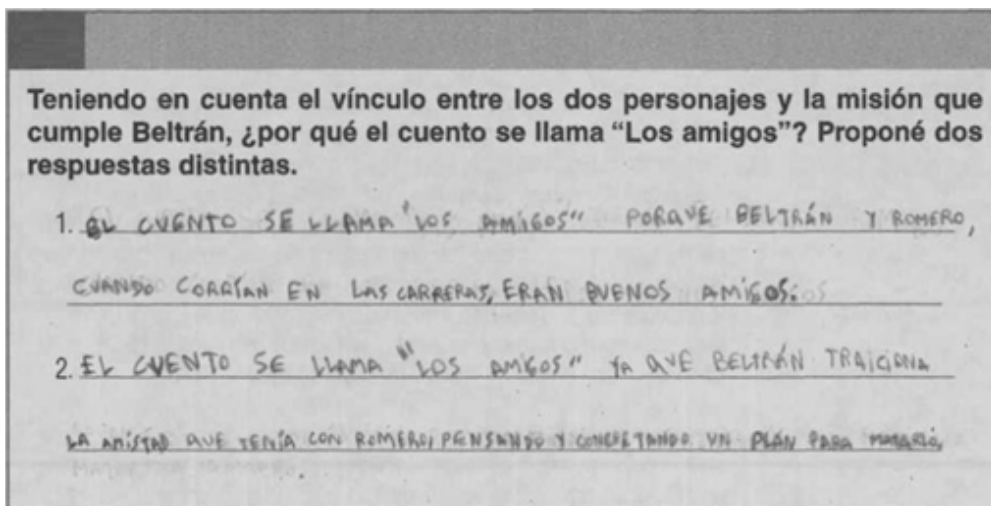 Teniendo en cuenta el vínculo entre los dos personajes y la misión que
cumple Beltrán, ¿por qué el cuento se llama “Los amigos”? Proponé dos
respuestas distintas.
1. EL CUENTO SE LLAMA "LOS AMIGOS" PORQUE BELTRÁN Y ROMERO,
CUANDO CORRÍAN EN LAS CARRERAS, ERAN BUENOS AMIGOS.
2. EL CUENTO SE LLAMA "LOS AMIGOS" YA QUE BELTRÁN TRAICIONA
LA AMISTAD QUE TENÍA CON ROMERO, PENSANDO Y CONCRETANDO UN PLAN PARA MATARLO.